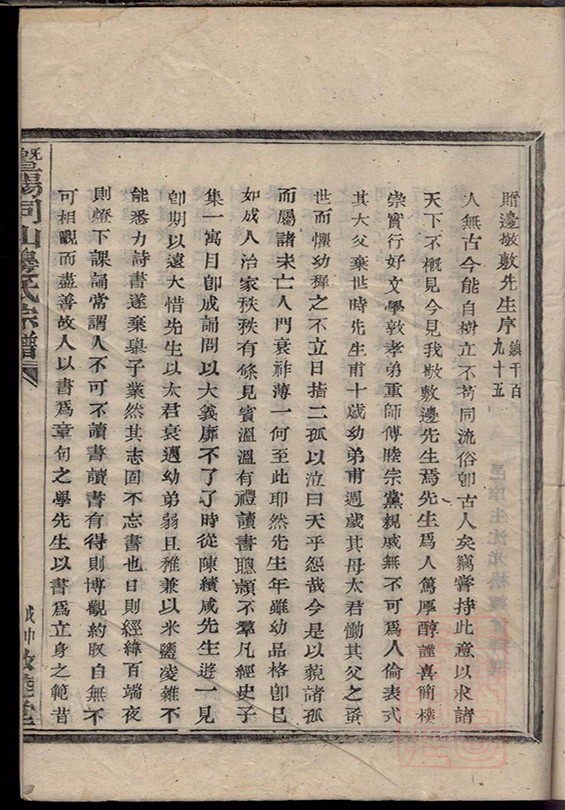 贈邊敬敷先生序 鎮千百九十五
人無古今能自樹立不苟同流俗卽古人矣竊嘗持此意以求諸
天下不槪見今見我敬敷邊先生焉先生爲人篤厚醇謹喜簡樸
崇實行好文學敦孝弟重師傅睦宗黨親戚無不可爲人倫表式
其大父棄世時先生甫十歲幼弟甫週歲其母太君慟其父之蚤
世而懼幼穉之不立日揩二孤以泣曰天乎怨哉今是以藐諸孤
而屬諸未亡人門衰祚薄一何至此耶然先生年雖幼品格卽已
如成人治家秩秩有條見賓溫溫有禮讀書聰顏不羣凡經史子
集一寓目卽成誦問以大義靡不了了時從陳績咸先生遊一見
卽期以遠大惜先生以太君衰邁幼弟弱且稚兼以米鹽凌雜不
能悉力詩書遂棄舉子業然其志固不忘書也日則經緯百端夜
則燈下課誦常謂人不可不讀書讀書有得則博觀約取自無不
可相觀而盡善故人以書爲章句之學先生以書爲立身之範昔
暨陽同山邊氏宗譜